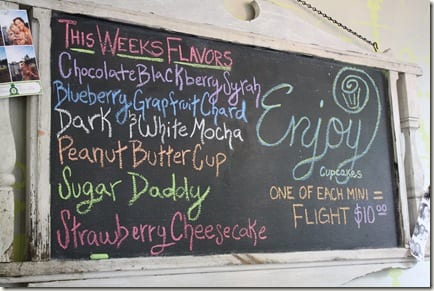 THIS WEEKS FLAVORS
Chocolate Blackberry Syrah
Blueberry Grapfruit Chard
Dark & White Mocha
Peanut Butter Cup
Sugar Daddy
Strawberry Cheesecake
Enjoy
Cupcakes
ONE OF EACH MINI =
FLIGHT $10.00